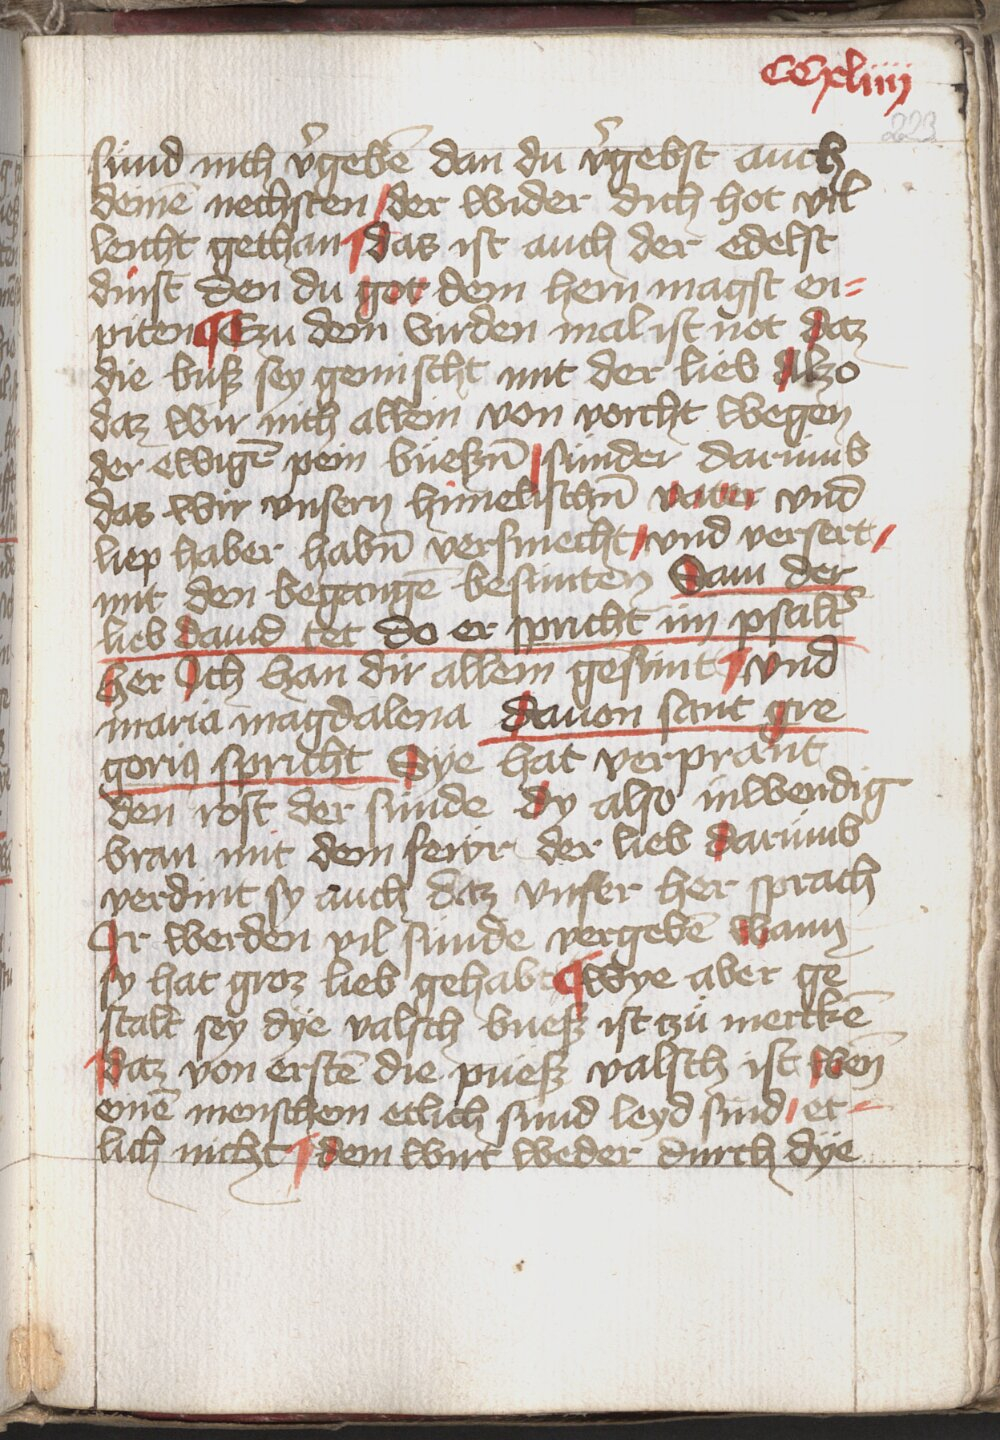 CCxliiij
223
sünd nich v̾gebē dan du v̾gebst auch
deinē nechsten / der wider dich hot vil
leicht gethan ¶ das ist auch der edelst
dinst den du got dem hern magst en-
piten ¶ Czu dem virden mal ist not daz
die buß sey gemischt mit der lieb Alzo
daz wir nich allein von vorcht wegen
der ewigē pein büeßn̄ / sunder darümb
das wir vnsern himelischn̄ vater vnd
liep haber habn̄ versmecht / vnd versert /
mit den begangē besünten Sam der
lieb dauid tet do er spricht im psalt̾
her Ich han dir allein gesünt / vnd
maria magdalena dauon sant gre
gorius spricht Sye hat verprant
den rost der sünde dy also inwendig
bran mit dem fewr der lieb darümb
verdint sy auch daz vnser her sprach
Ir werden vil sünde vergebē wann
sy hat groz lieb gehabt ¶ Wye aber ge
stalt sey dye valsch bueß ist tzü merckē
daz von erstē die pueß valsch ist wen̄
einē menschem etlich sünd leyd sind / et-
lich nicht / dem wirt weder durch dye